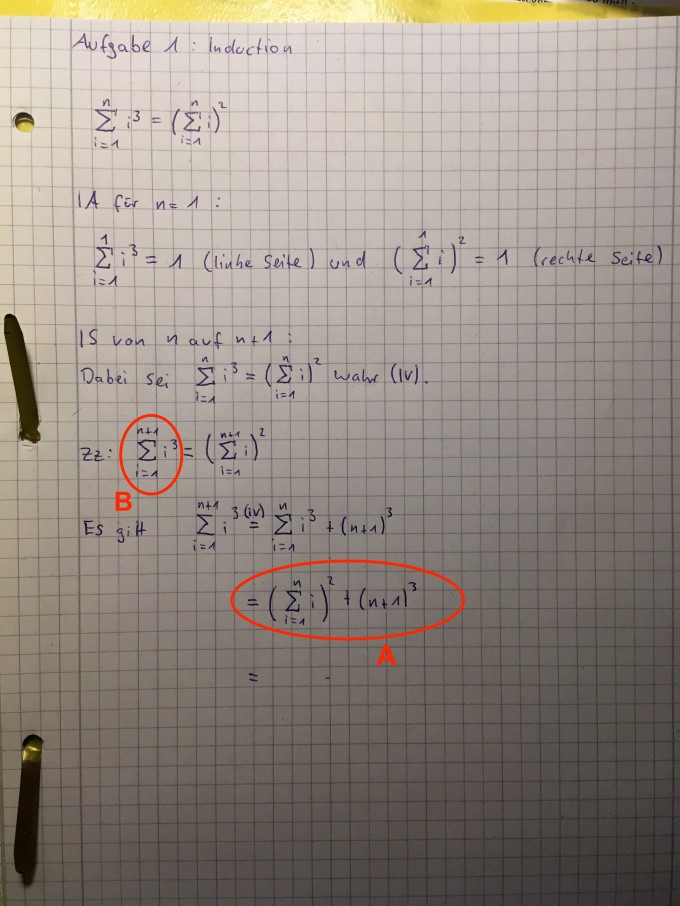 Aufgabe 1 : Induction
∑_{i=1}^{n} i³ = (∑_{i=1}^{n} i)²
IA für n=1 :
∑_{i=1}^{1} i³ = 1 (linke Seite) und (∑_{i=1}^{1} i)² = 1 (rechte Seite)
IS von n auf n+1 :
Dabei sei ∑_{i=1}^{n} i³ = (∑_{i=1}^{n} i)² wahr (IV).
ZZ: ∑_{i=1}^{n+1} i³ = (∑_{i=1}^{n+1} i)²
B
Es gilt ∑_{i=1}^{n+1} i³ =^{(iv)} ∑_{i=1}^{n} i³ + (n+1)³
= (∑_{i=1}^{n} i)² + (n+1)³
A
=